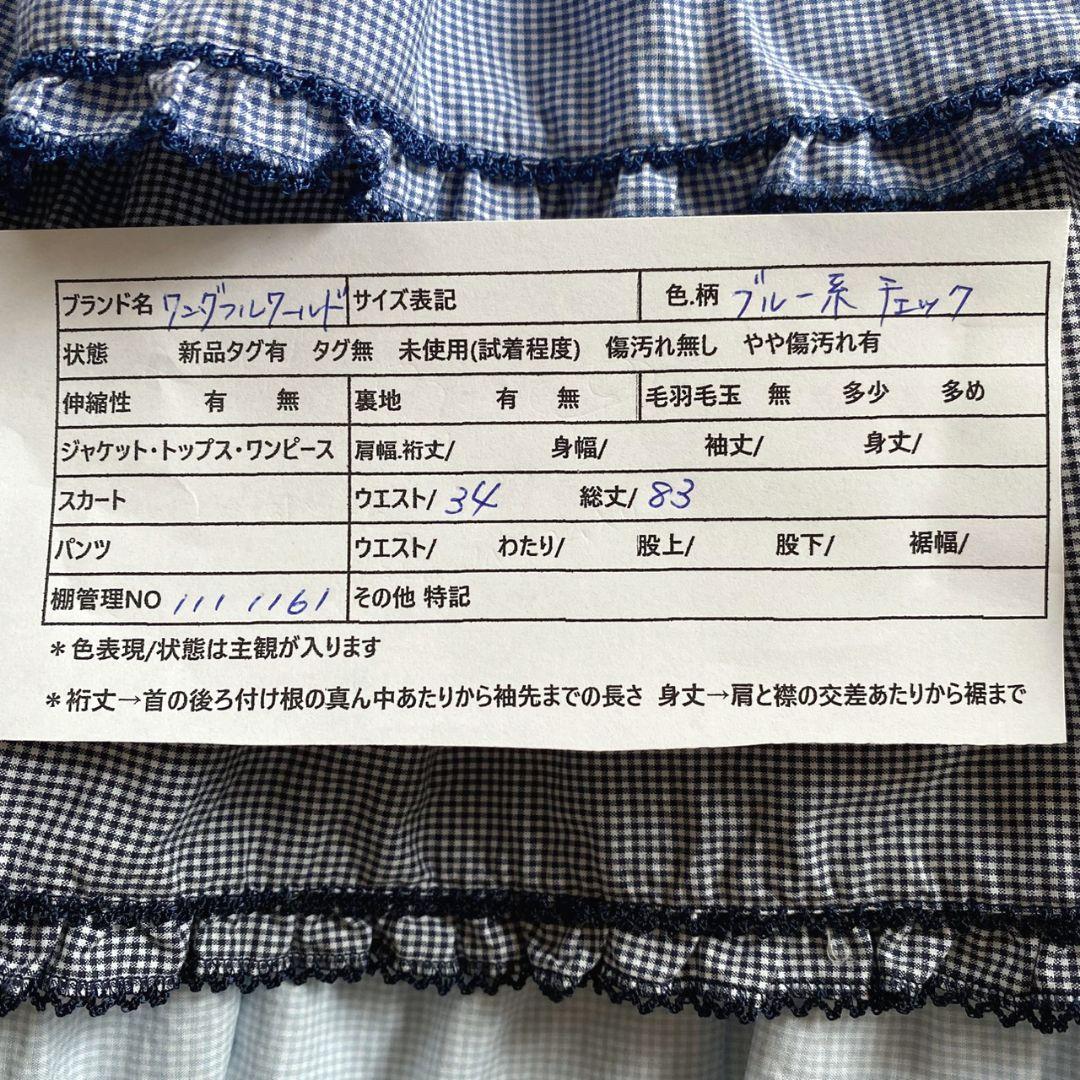 ブランド名 ワンダフルワールド サイズ表記 色.柄 ブルー系 チェック
状態 新品タグ有 タグ無 未使用(試着程度) 傷汚れ無し やや傷汚れ有
伸縮性 有 無 裏地 有 無 毛羽毛玉 無 多少 多め
ジャケット・トップス・ワンピース 肩幅.裄丈/ 身幅/ 袖丈/ 身丈/
スカート ウエスト/ 34 総丈/ 83
パンツ ウエスト/ わたり/ 股上/ 股下/ 裾幅/
棚管理NO 111 1161 その他 特記
＊色表現/状態は主観が入ります
＊裄丈→首の後ろ付け根の真ん中あたりから袖先までの長さ 身丈→肩と襟の交差あたりから裾まで